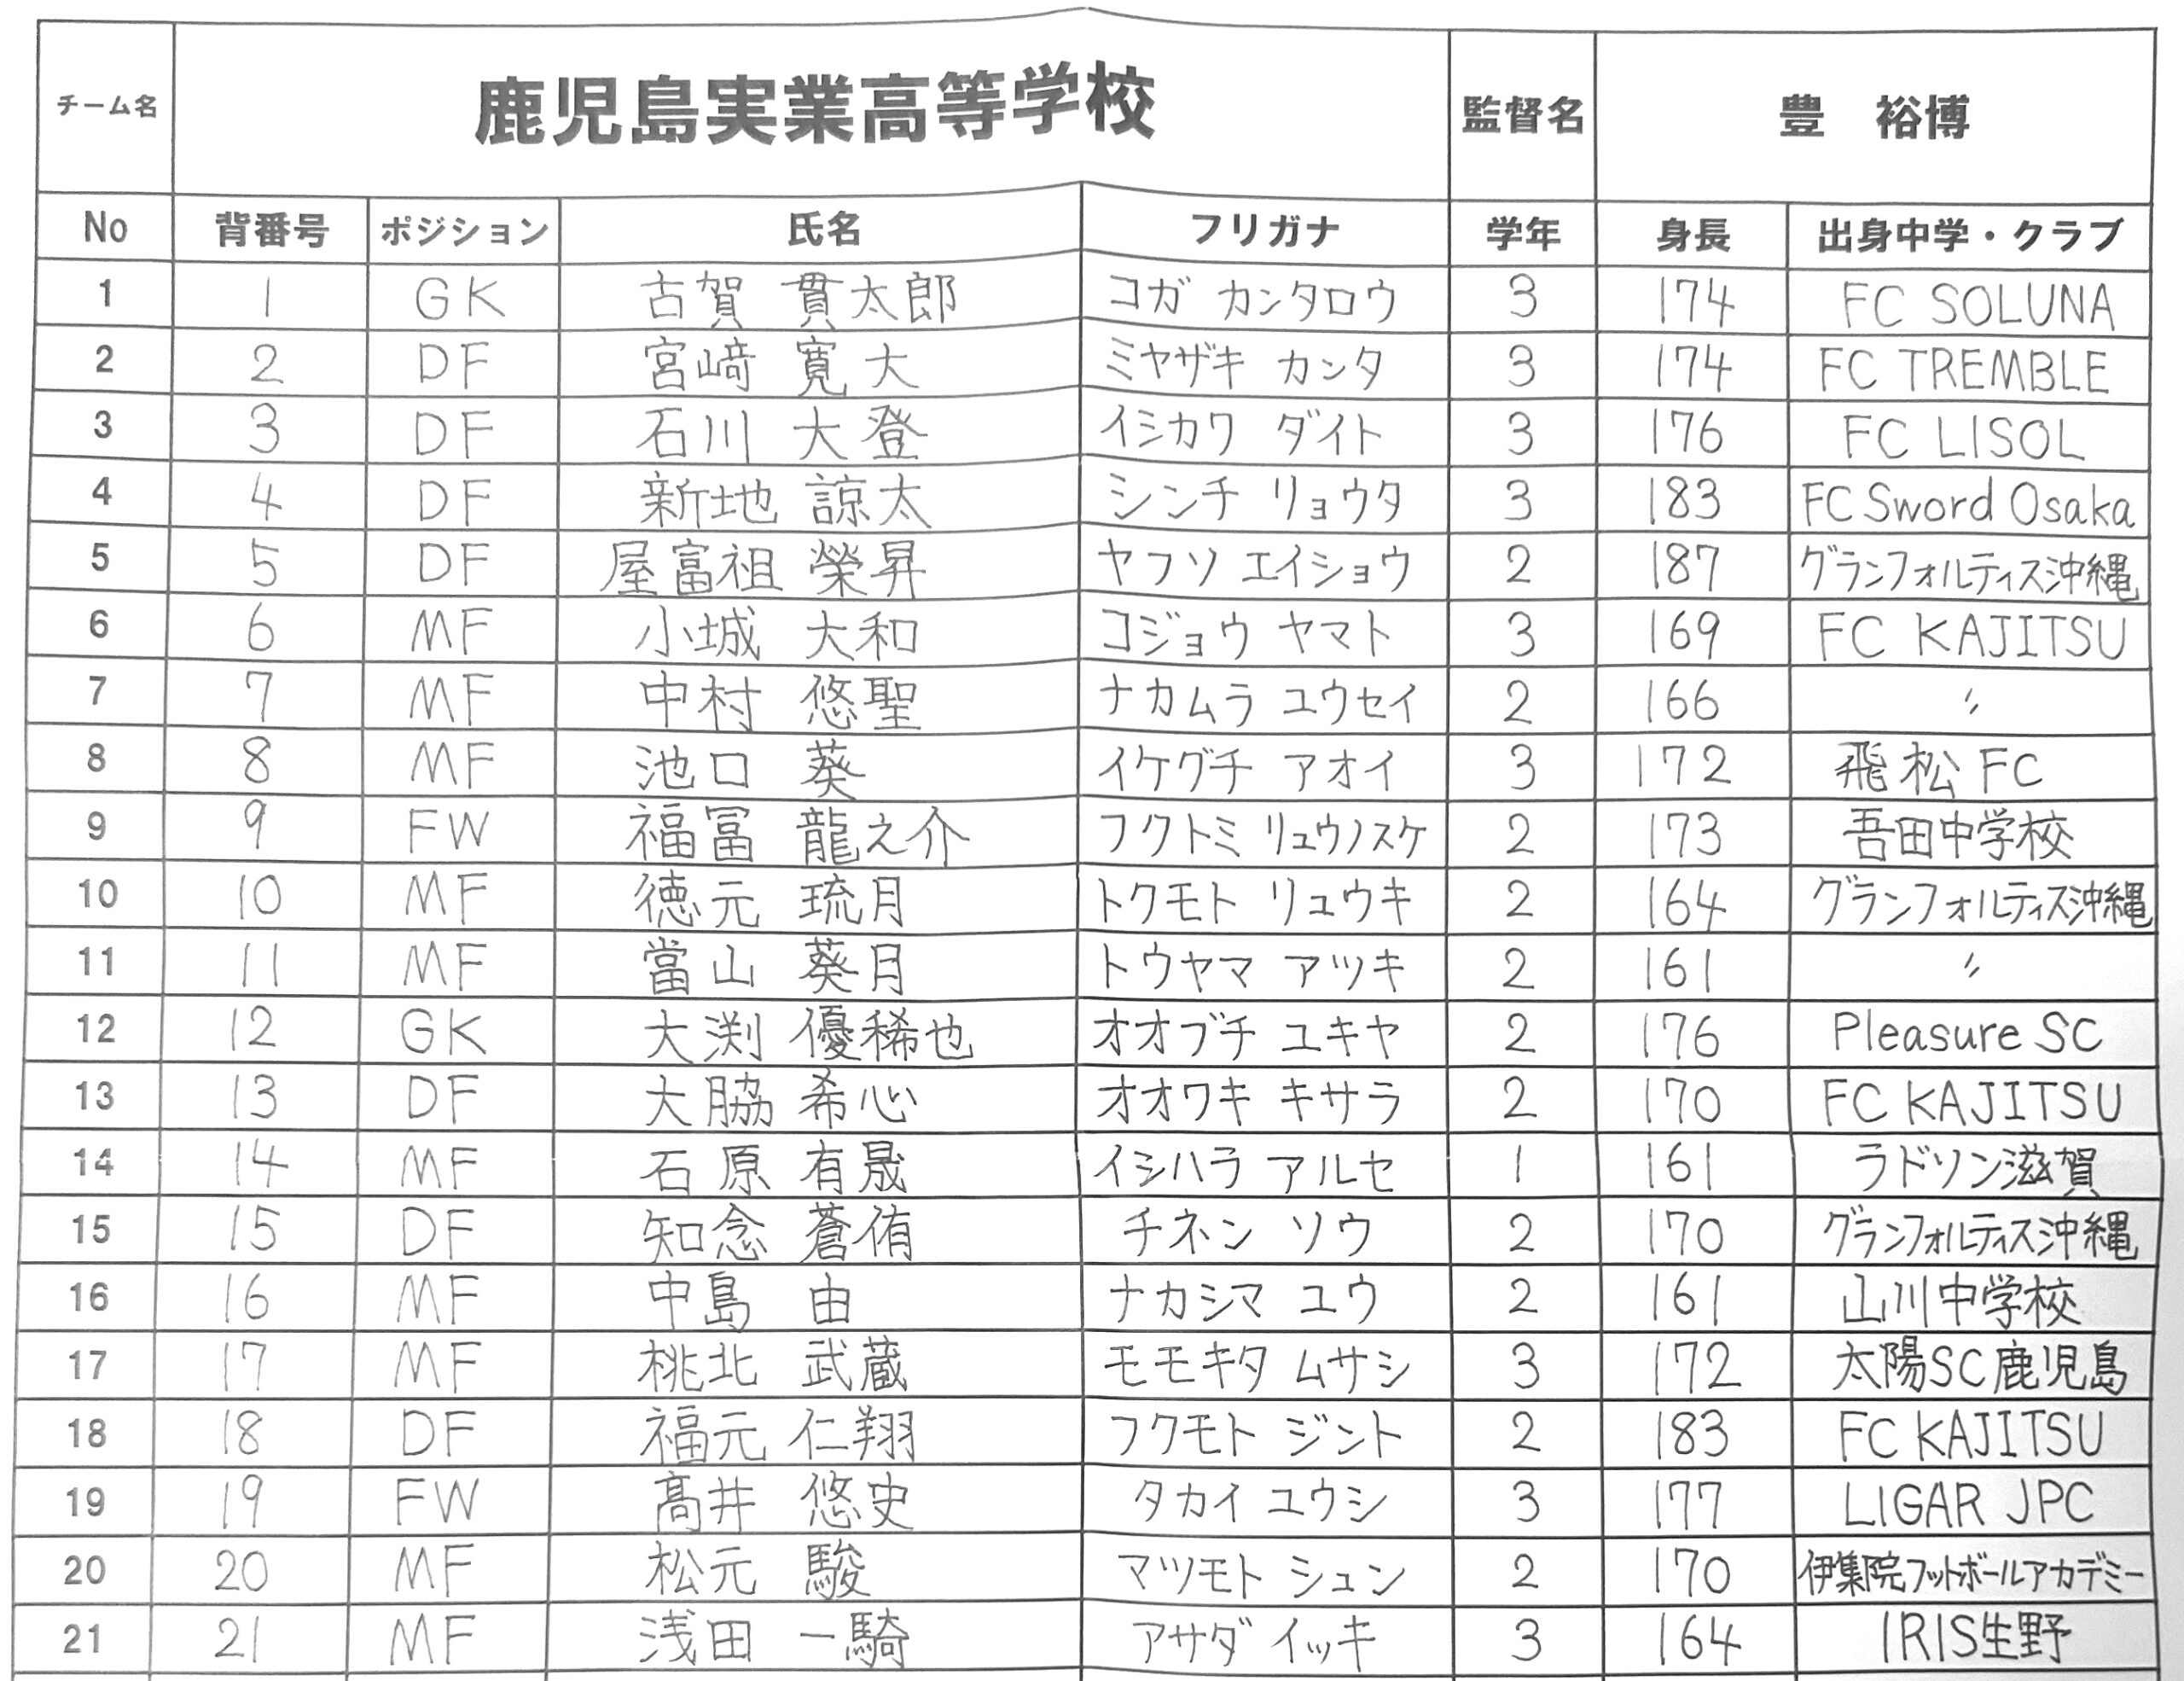 チーム名 鹿児島実業高等学校 監督名 豊 裕博
No 背番号 ポジション 氏名 フリガナ 学年 身長 出身中学・クラブ
1 1 GK 古賀 貫太郎 コガ カンタロウ 3 174 FC SOLUNA
2 2 DF 宮﨑 寛大 ミヤザキ カンタ 3 174 FC TREMBLE
3 3 DF 石川 大登 イシカワ ダイト 3 176 FC LISOL
4 4 DF 新地 諒太 シンチ リョウタ 3 183 FC Sword Osaka
5 5 DF 屋富祖 榮昇 ヤフソ エイショウ 2 187 グランフォルティス沖縄
6 6 MF 小城 大和 コジョウ ヤマト 3 169 FC KAJITSU
7 7 MF 中村 悠聖 ナカムラ ユウセイ 2 166 〃
8 8 MF 池口 葵 イケグチ アオイ 3 172 飛松FC
9 9 FW 福冨 龍之介 フクトミ リュウノスケ 2 173 吾田中学校
10 10 MF 徳元 琉月 トクモト リュウキ 2 164 グランフォルティス沖縄
11 11 MF 當山 葵月 トウヤマ アツキ 2 161 〃
12 12 GK 大渕 優稀也 オオブチ ユキヤ 2 176 Pleasure SC
13 13 DF 大脇 希心 オオワキ キサラ 2 170 FC KAJITSU
14 14 MF 石原 有晟 イシハラ アルセ 1 161 ラドソン滋賀
15 15 DF 知念 蒼侑 チネン ソウ 2 170 グランフォルティス沖縄
16 16 MF 中島 由 ナカシマ ユウ 2 161 山川中学校
17 17 MF 桃北 武蔵 モモキタ ムサシ 3 172 太陽SC鹿児島
18 18 DF 福元 仁翔 フクモト ジント 2 183 FC KAJITSU
19 19 FW 髙井 悠史 タカイ ユウシ 3 177 LIGAR JPC
20 20 MF 松元 駿 マツモト シュン 2 170 伊集院フットボールアカデミー
21 21 MF 浅田 一騎 アサダ イッキ 3 164 IRIS生野